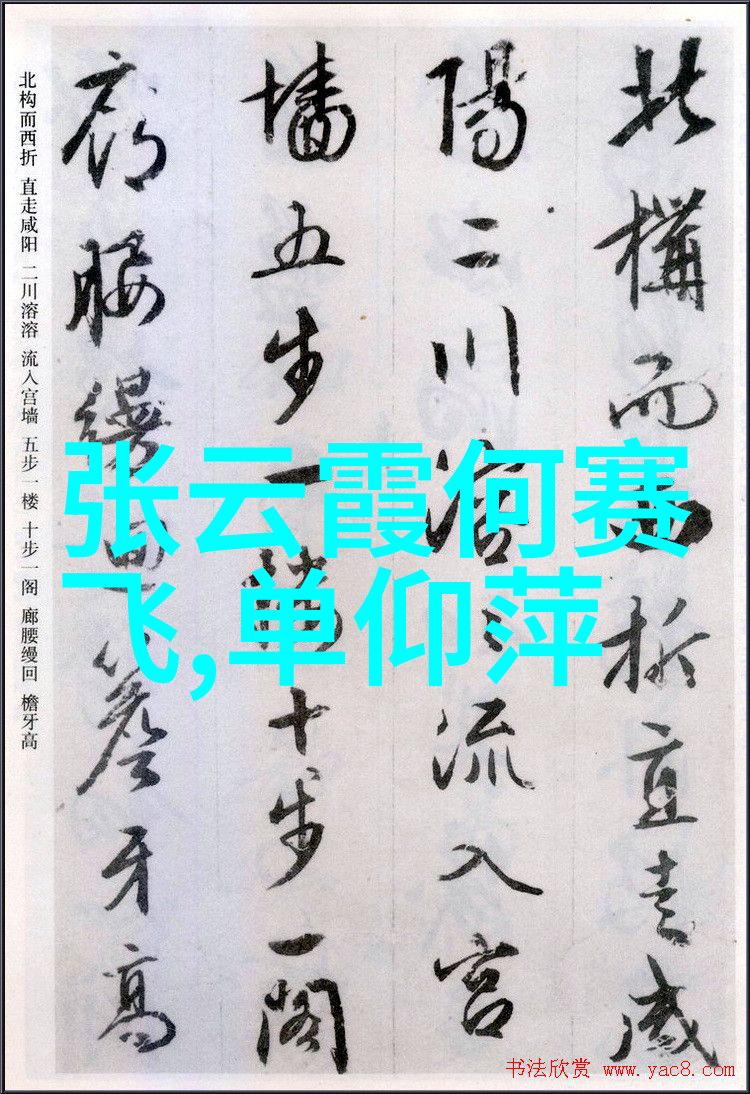 北構而西折直走咸
陽二川溶々流入宫
墻五步一樓十步一閣
廊腰縵迴簷牙高
北构而西折 直走咸阳 二川溶溶 流入宫墙 五步一楼 十步一阁 廊腰缦回 檐牙高
张云霞何赛
飞,单仰萍
书法欣赏 www.yac8.com